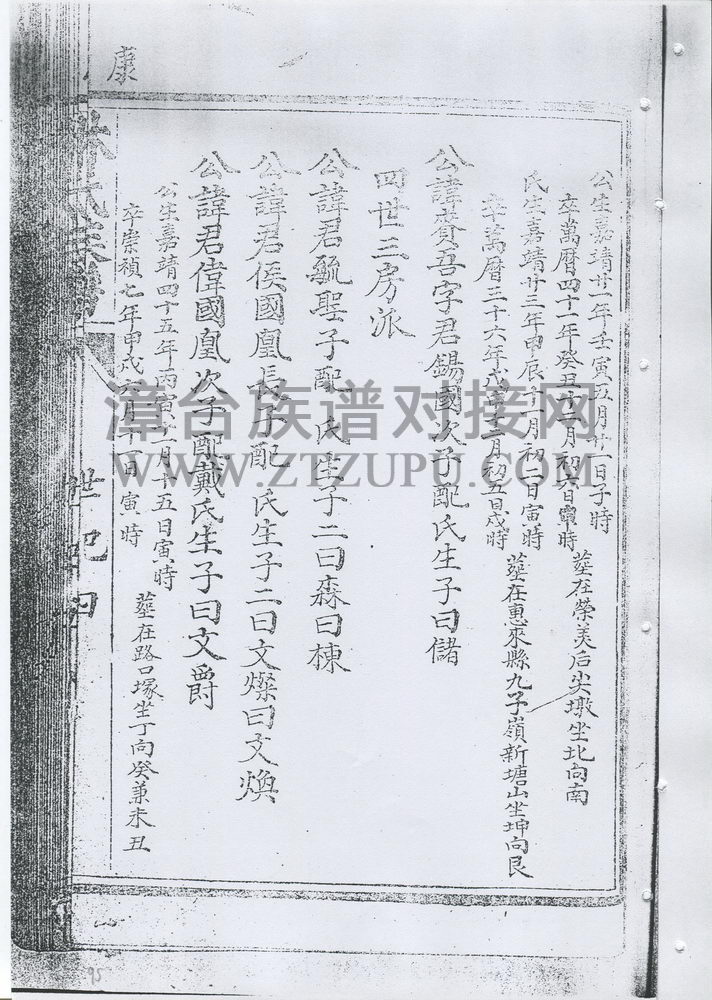 康
公生嘉靖廿一年壬寅五月廿一日子時
卒萬曆四十一年癸丑十二月初六日寅時
墓在榮美后尖墩坐北向南
氏生嘉靖廿三年甲辰十一月初一日寅時
卒萬曆三十六年戊申二月初五日戌時
墓在惠來縣九子嶺新塘山坐坤向艮
公諱賚吾字君錫國次子配氏生子曰儲
四世三房派
公諱君毓聖子配 氏生子二曰森曰棟
公諱君侯國凰長子配 氏生子二曰文燦曰文煥
公諱君偉國凰次子配戴氏生子曰文爵
公生嘉靖四十五年丙寅十一月十五日寅時
卒崇禎七年甲戌六月十一日寅時
墓在路口塚坐丁向癸兼未丑
世紀四
95
漳台族谱对接网
WWW.ZTZUPU.COM